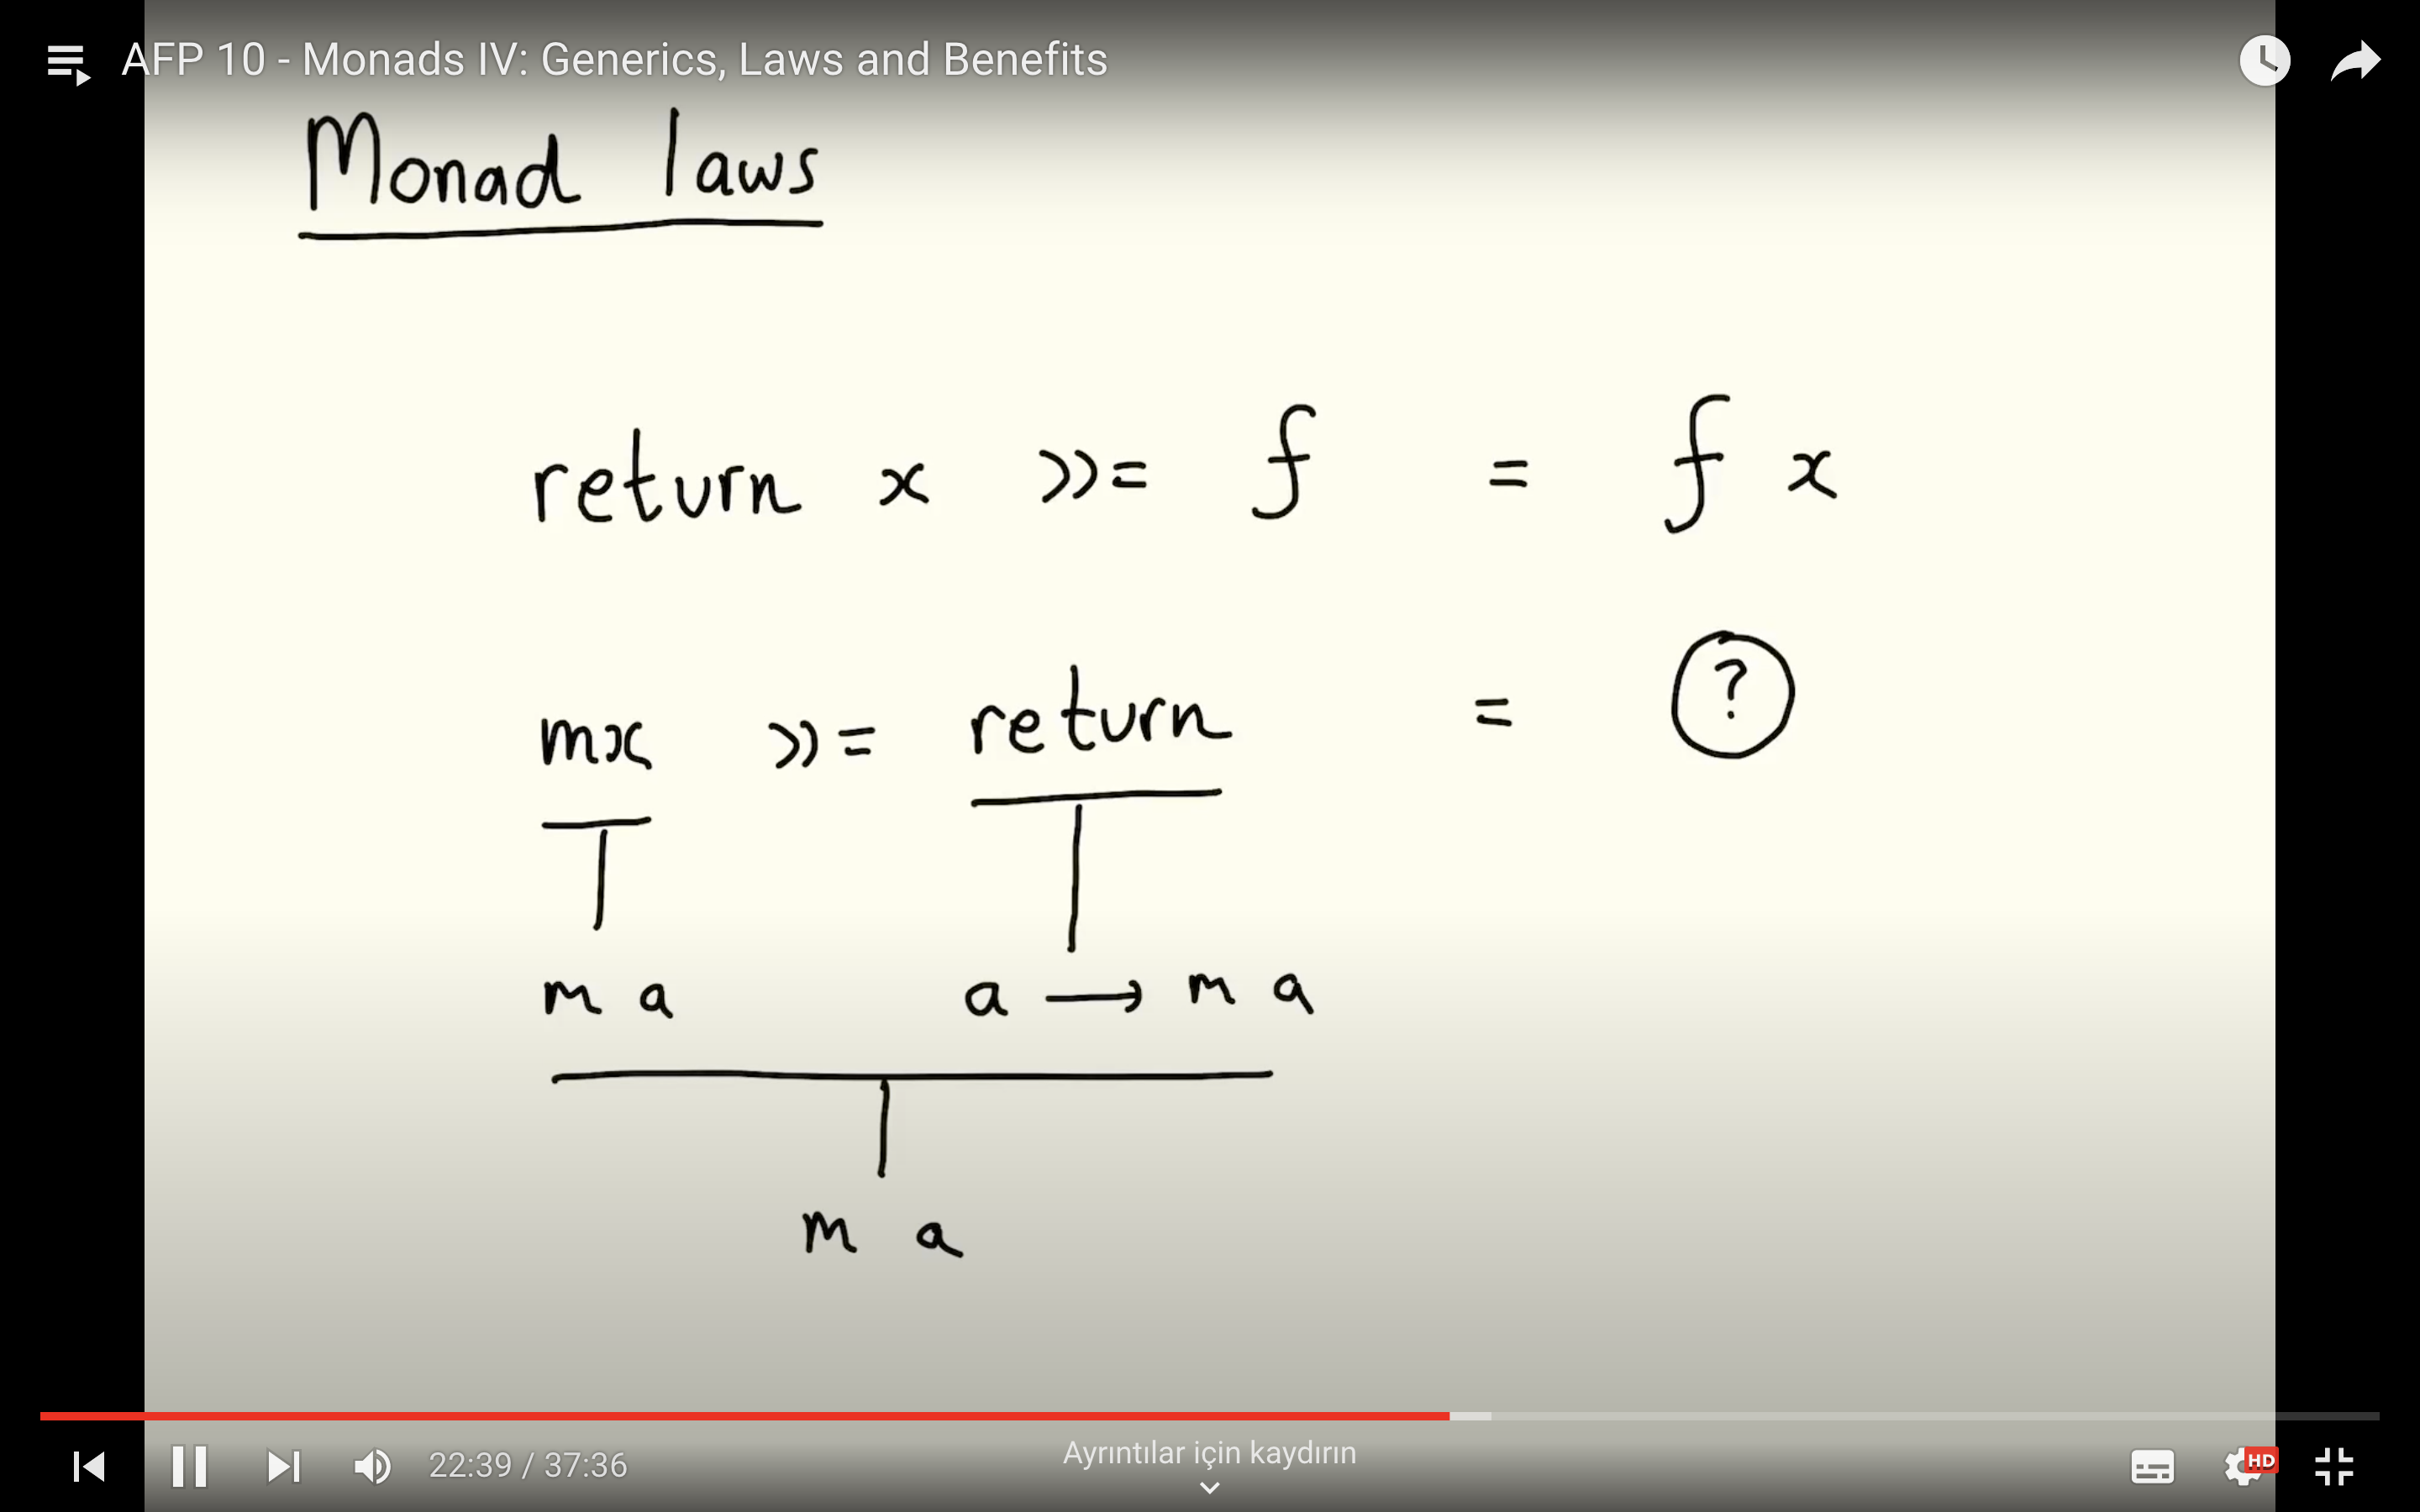 AFP 10 - Monads IV: Generics, Laws and Benefits
Monad laws
return x >>= f = f x
mx >>= return = ?
m a a → m a
m a
22:39 / 37:36
Ayrıntılar için kaydırın
HD